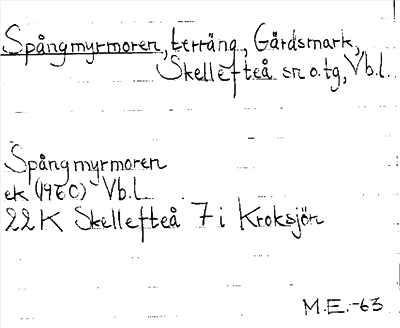 Spångmyrmoren, terräng, Gårdsmark,
Skellefteå sn o. tg, Vb.l.
Spångmyrmoren
ek (1960) Vb.l.
22K Skellefteå 7i Kroksjön
M.E.-63